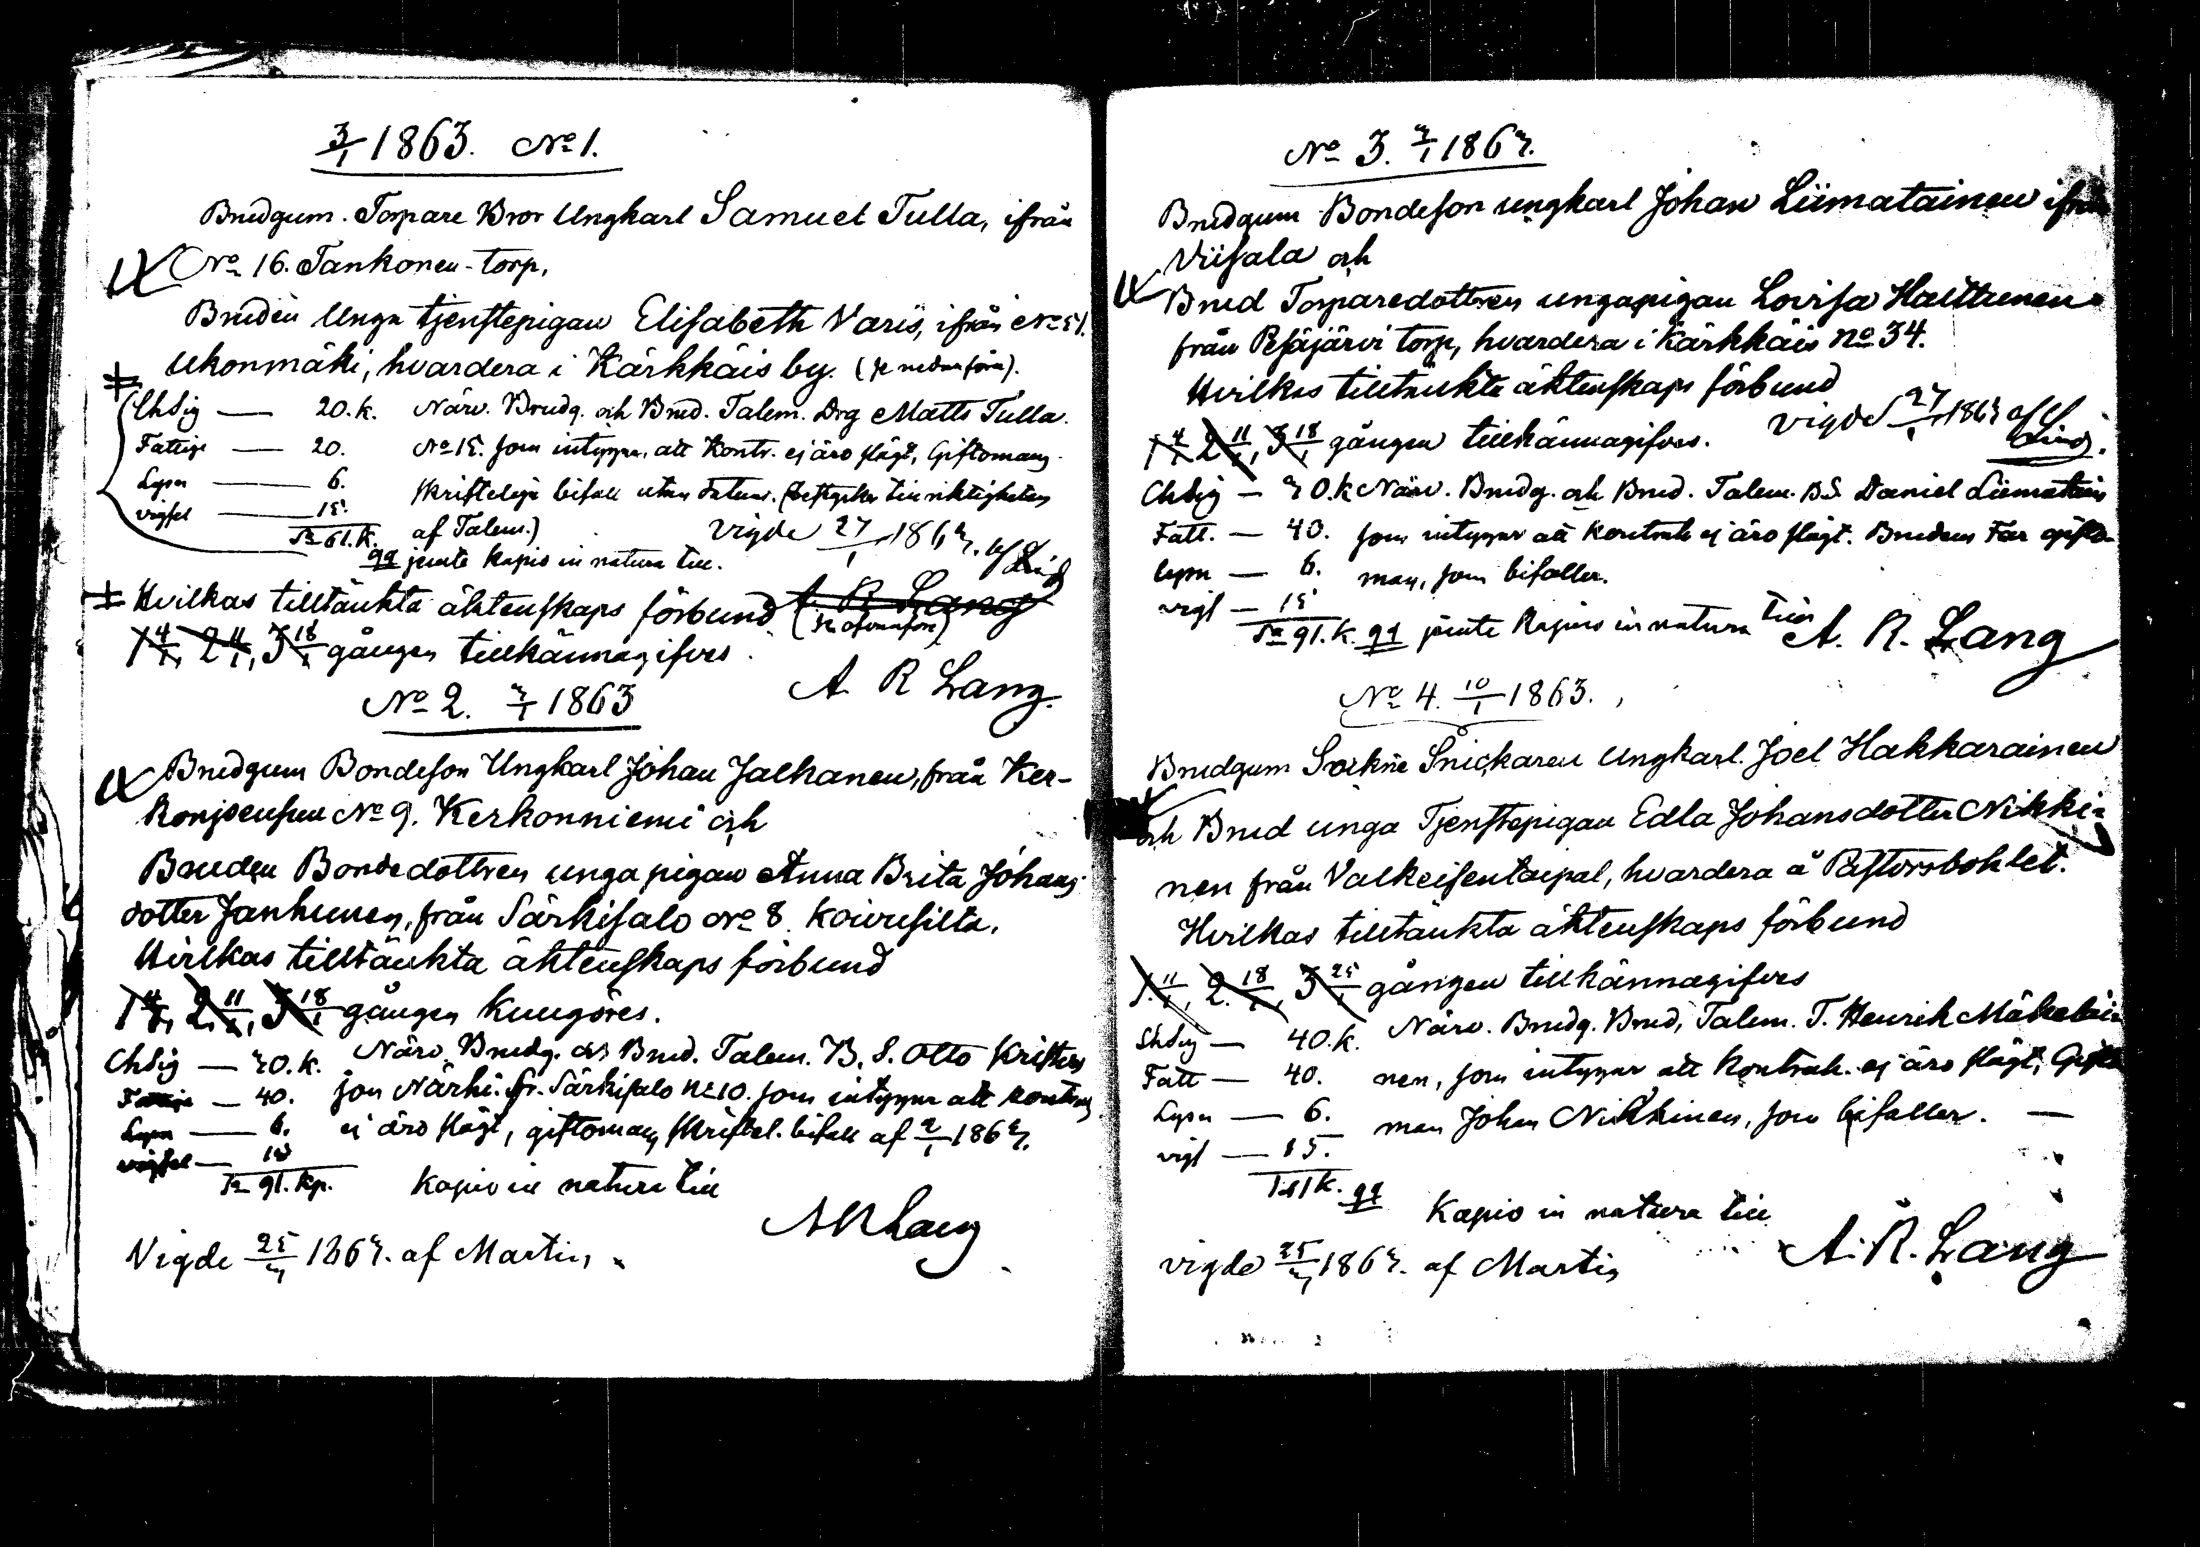 3/1 1863. No 1.
Brudgum. Torpare Bror Ungkarl Samuel Tulla, ifrån
No 16. Tankonen-torp,
Bruden Unga tjenstepigan Elisabeth Varis, ifrån No 51.
Ukonmäki, hvardera i Kärkkäis by. (se nedanföre).
Chsig — 20. k. Närv. Brudg. och Brud. Talem. Drg Matts Tulla.
Fattige — 20. No 15. som intygar, att Kontr. ej äro slägt, Giftomans
Lysn — 6. skriftelige bifall utan datum. (bestyrkes till riktigheten
vigsel — 15. af Talem.)
Sa 61. k. Vigde 27/1 1863. af Lind
jemte kapio in natura till.
Hvilkas tilltänkta äktenskaps förbund A R Lang
(se ofvanföre)
1 4/1, 2 11/1, 3 18/1 gången tillkännagifves.
A R Lang.
No 2. 3/1 1863
Brudgum Bondeson Ungkarl Johan Jalkanen, från Ker-
konjoensuu No 9. Kerkonniemi och
Bruden Bondedottren unga pigan Anna Brita Johans
dotter Janhunen, från Särkisalo No 8. Koivusilta.
Hvilkas tilltänkta äktenskaps förbund
1 4/1, 2 11/1, 3 18/1 gången kungöres.
Chsig — 30. k. Närv. Brudg. och Brud. Talem. B. S. Otto Krister
Fattige — 40. son Närhi. fr. Särkisalo No 10. som intygar att kontrah
Lysn — 6. ej äro slägt, giftomans skriftel. bifall af 2/1 1863.
vigsel — 15
Sa 91. kp. Kapio in natura till
A R Lang
Vigde 25/3 1863. af Martin
No 3. 3/1 1863.
Brudgum Bondeson ungkarl Johan Liimatainen ifrån
Viisala och
Brud Torparedottren ungapigan Lovisa Hauttunen
från Pesäjärvi torp, hvardera i Kärkkäis No 34.
Hvilkas tilltänkta äktenskaps förbund
1 4/1, 2 11/1, 3 18/1 gången tillkännagifves. Vigde 27/1 1863 af
Lind.
Chsig — 30. k Närv. Brudg. och Brud. Talem. B.S. Daniel Liimatain
Fatt. — 40. som intygar att Kontrah ej äro slägt. Brudens Far gifto-
lysn — 6. man, som bifaller.
vigs — 15
Sa 91. k. jemte Kapio in natura till
A. R. Lang
No 4. 10/1 1863.
Brudgum Sockne Snickaren Ungkarl. Joel Hakkarainen
och Brud unga Tjenstepigan Edla Johansdotter Nikki-
nen från Valkeisentaipal, hvardera å Pastorsbohlet.
Hvilkas tilltänkta äktenskaps förbund
1. 11/1, 2. 18/1, 3 25/1 gången tillkännagifves
Chsig — 40. k. Närv. Brudg. Brud, Talem. T. Henrik Mäkeläi
Fatt — 40. nen, som intygar att Kontrah. ej äro slägt, Gifto
Lysn — 6. man Johan Nikkinen, som bifaller. —
vigs — 15.
k. Kapio in natura till
A. R. Lang
vigde 25/3 1863. af Martin